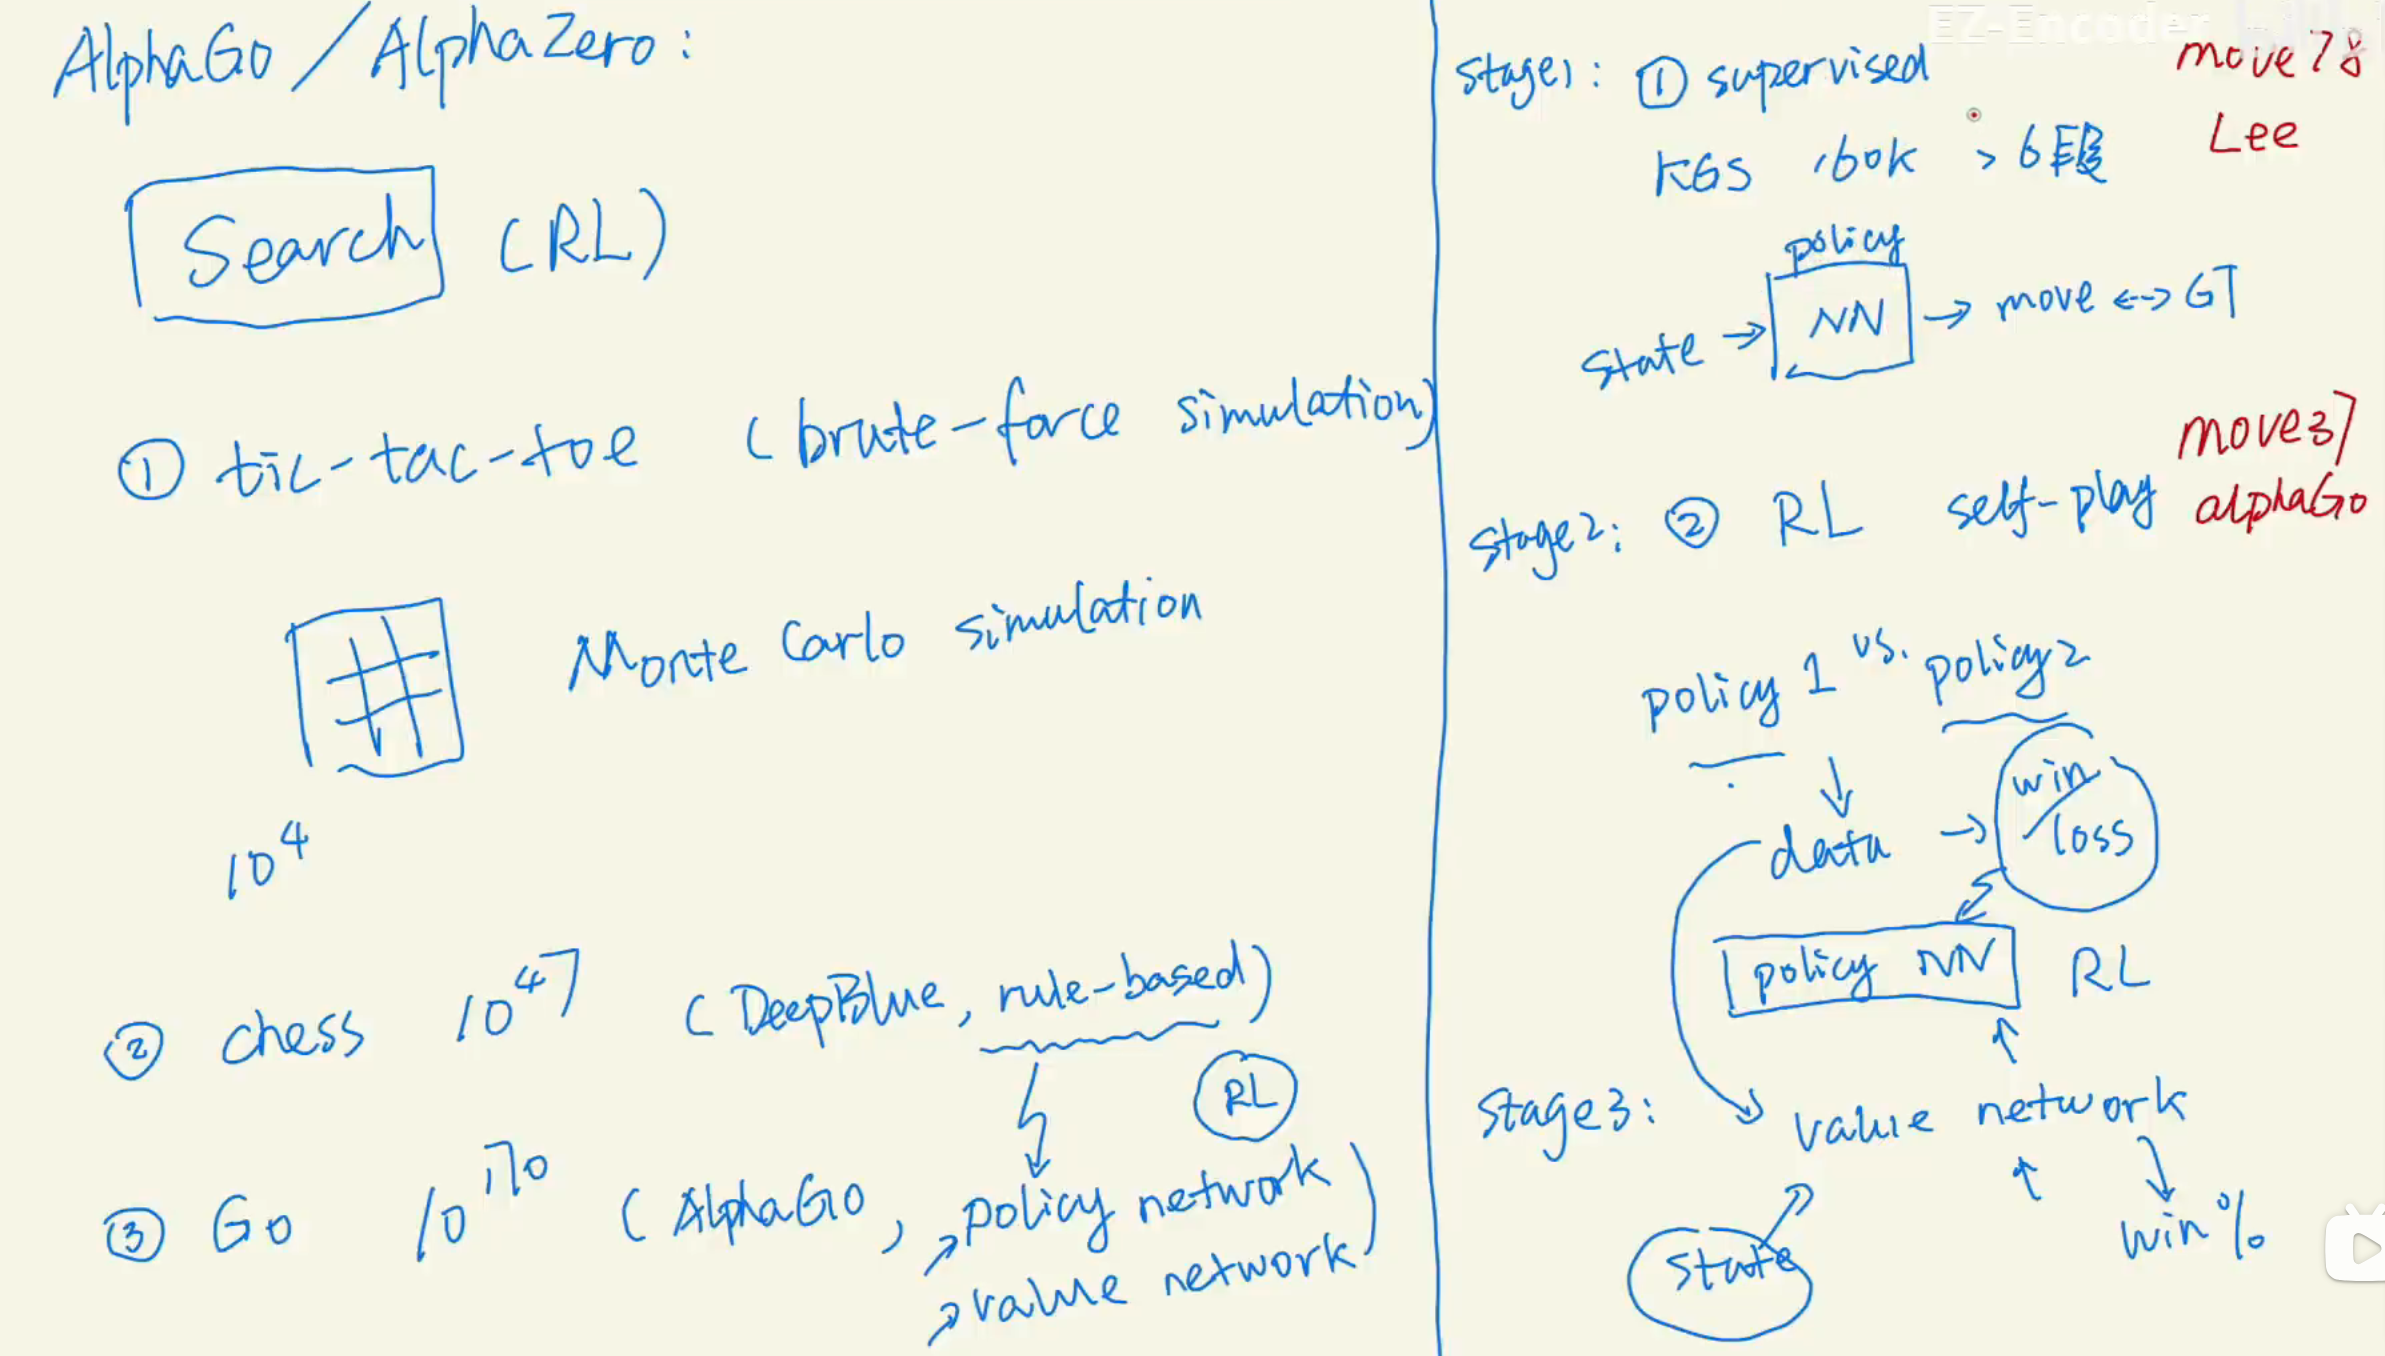 AlphaGo / AlphaZero:
Search (RL)
① tic-tac-toe (brute-force simulation)
Monte Carlo simulation
10^4
② chess 10^47 (DeepBlue, rule-based)
RL
③ Go 10^170 (AlphaGo, policy network
value network)
EZ-Encoder
stage1: ① supervised
move78
Lee
KGS 160k > 6段
policy
state → NN → move ↔ GT
move37
alphaGo
stage2: ② RL self-play
policy 1 vs. policy2
data → win/loss
policy NN RL
stage3: value network
state
win%